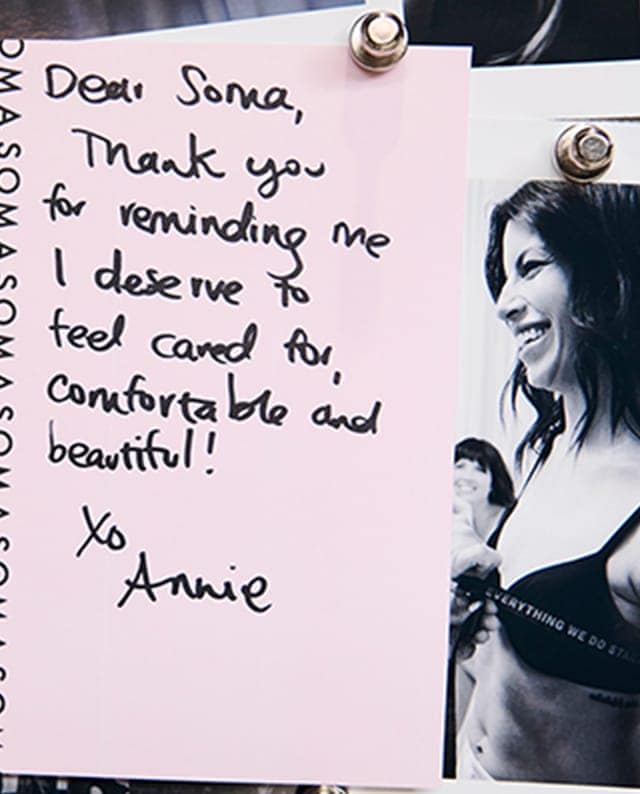 SOMASOMASOMASOMASOM
Dear Soma,
Thank you
for reminding me
I deserve to
feel cared for,
comfortable and
beautiful!
Xo
Annie
EVERYTHING WE DO STA